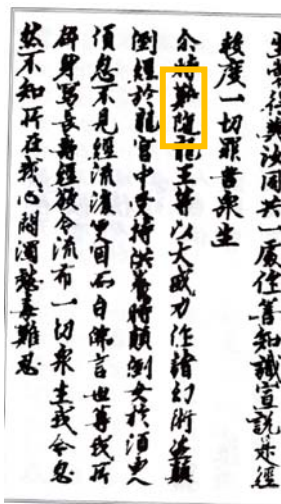 生常得與汝同共一處作善知識宣說此經
救度一切罪苦衆生
尒時難陁龍王等以大威力作諸幻術迭顛
倒經於龍宮中受持供養時顛倒女於須臾
頃忽不見經流淚哽咽而白佛言世尊我所
碎身寫長壽經欲令流布一切衆生我今忽
然不知所在我心悶濁愁毒難忍